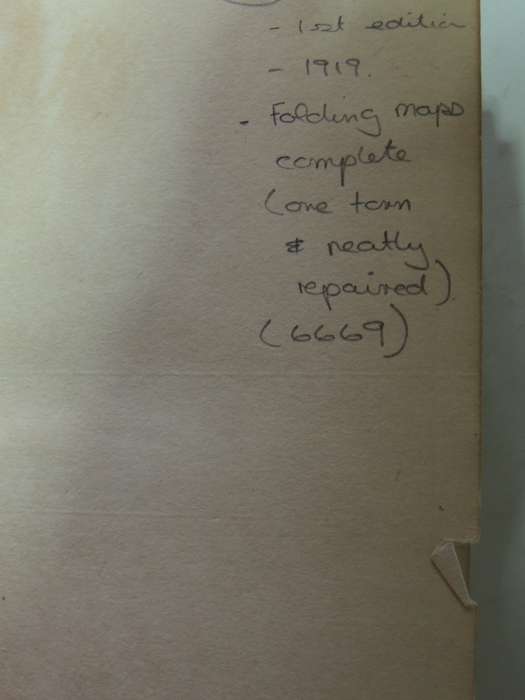 - 1st edition
- 1919.
- Folding maps
complete
(one torn
& neatly
repaired)
(6669)